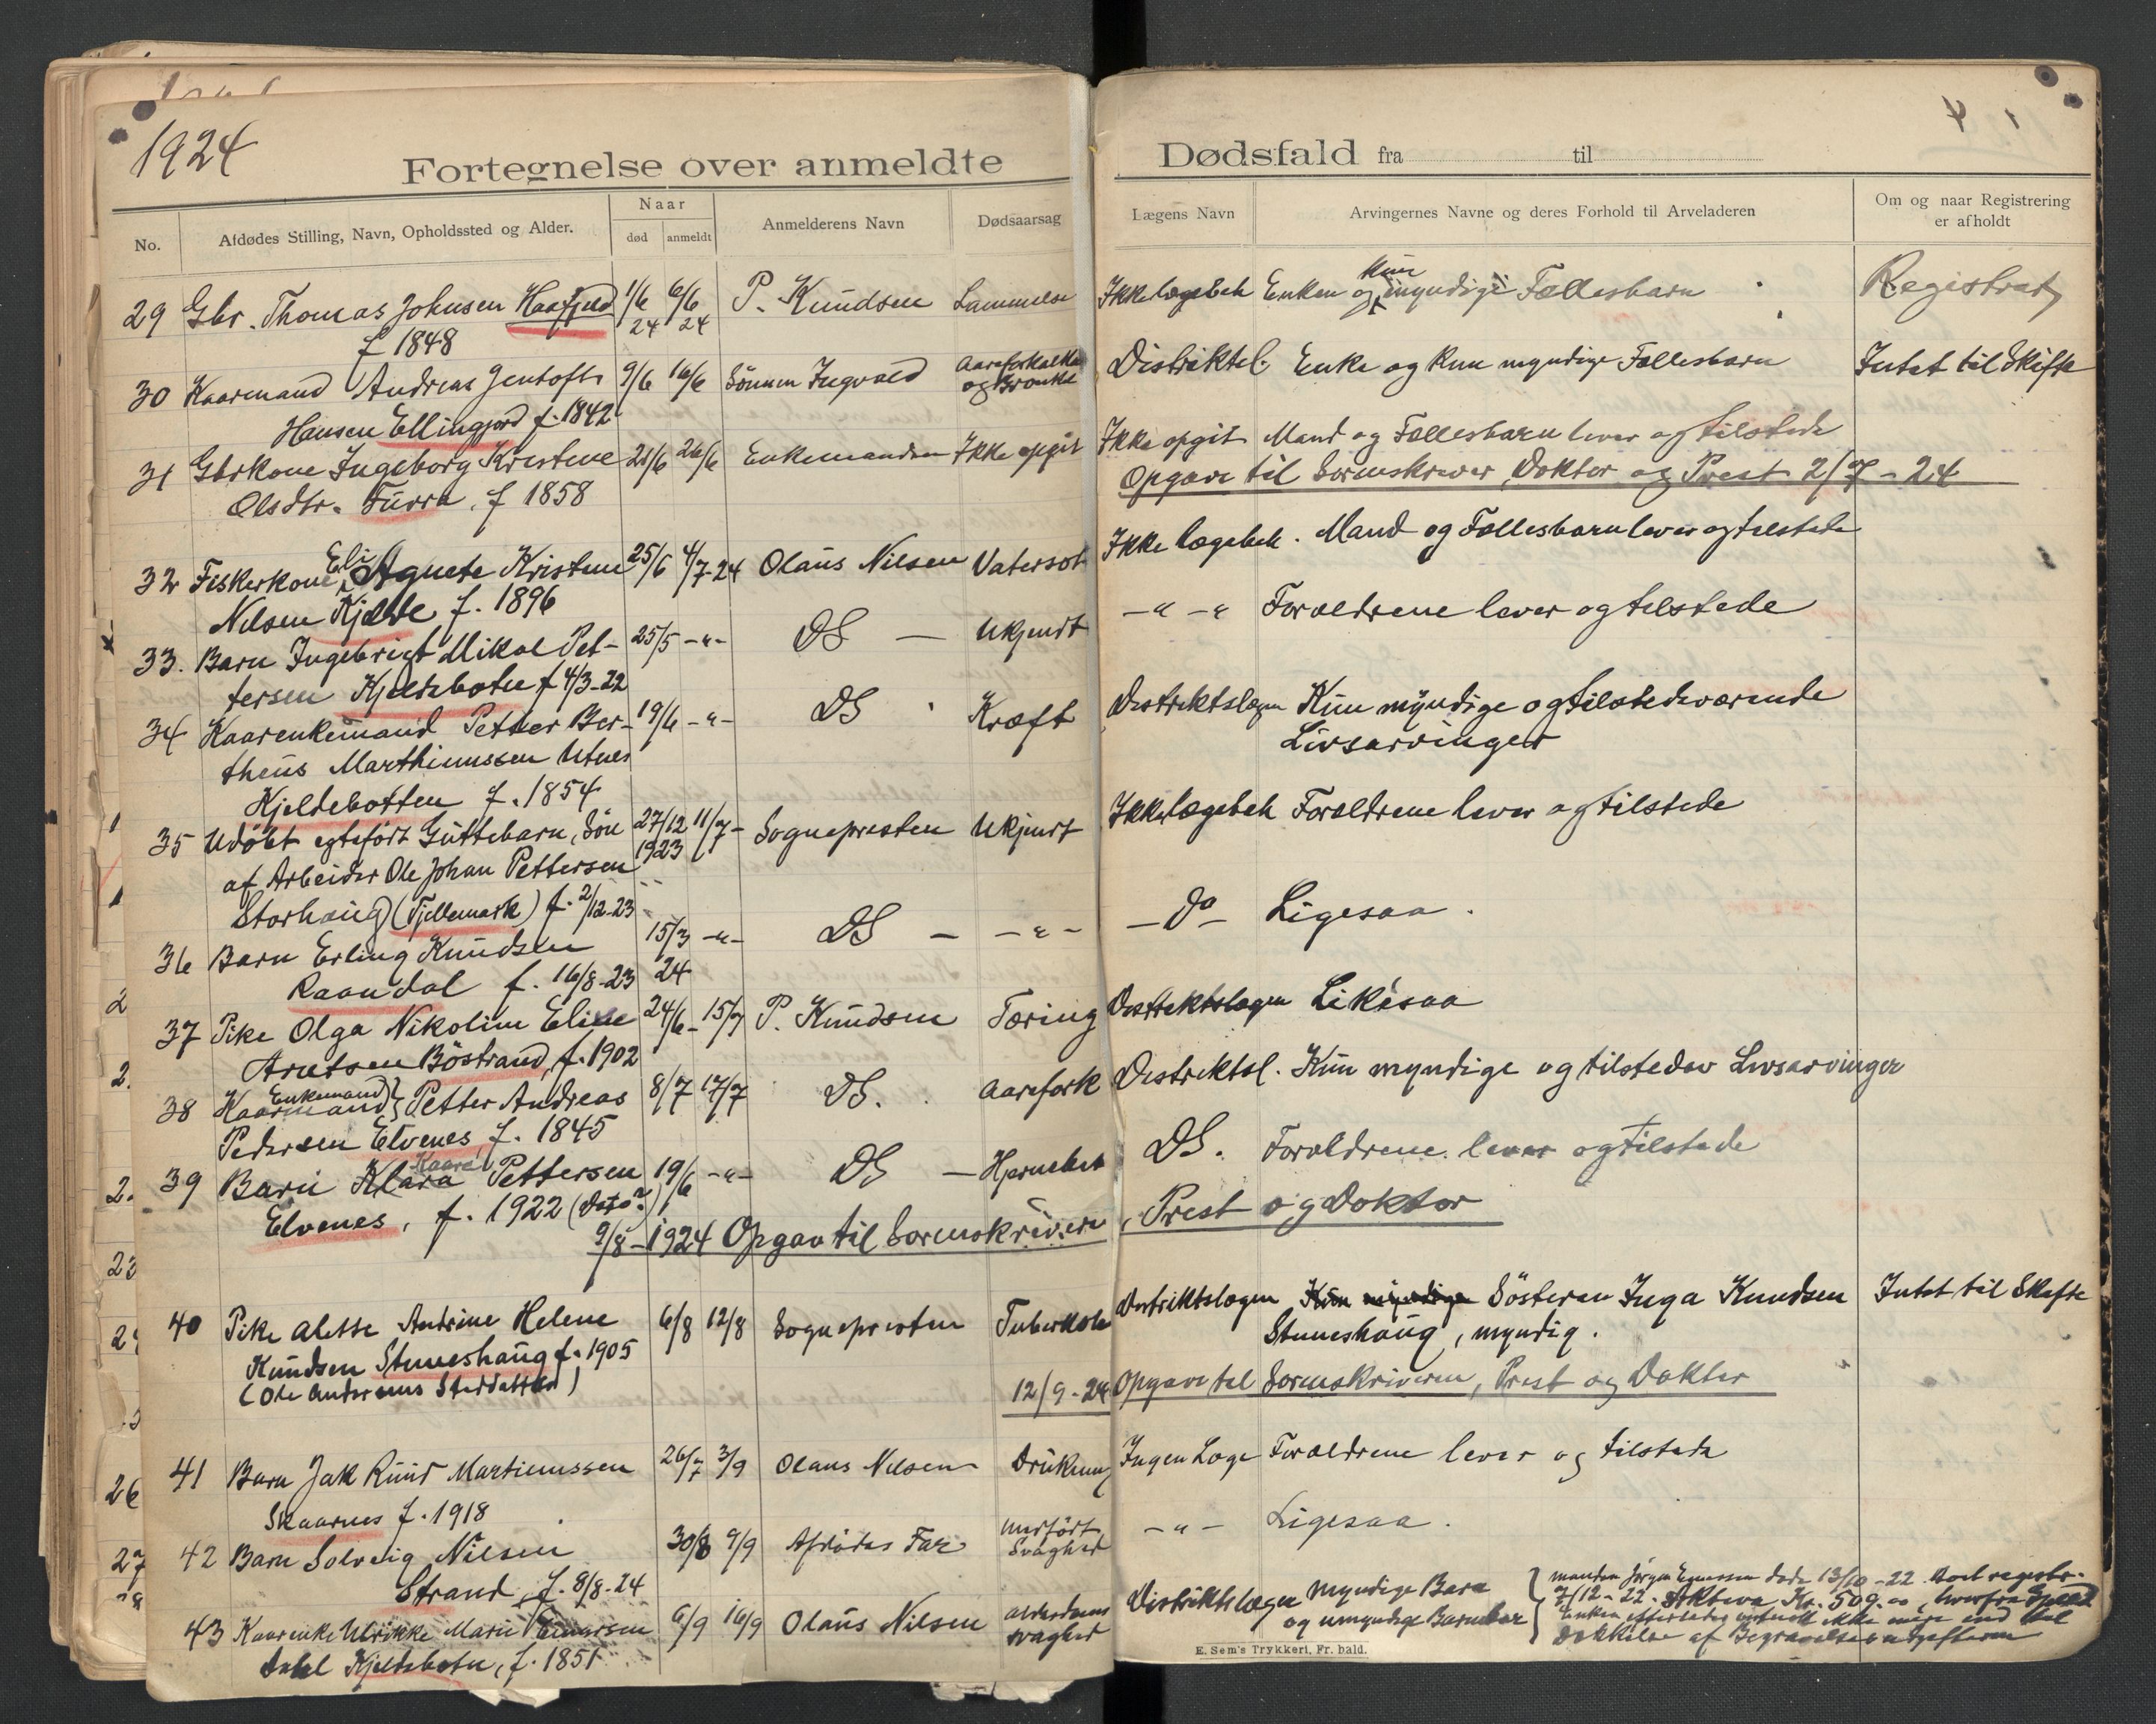 1924
Fortegnelse over anmeldte
No.
Afdødes Stilling, Navn, Opholdssted og Alder.
Naar
død
anmeldt
Anmelderens Navn
Dødsaarsag
29 Gbr. Thomas Johnsen Haafjeld 1/6 24 6/6 24 P. Knudsen Lammelse
f 1848
30 Kaarmand Andreas Jentoft 9/6 16/6 Sönnen Ingvald Aareforkalkn
og Bronkit
Hansen Ellingjord f. 1842
31 Gbrkone Ingeborg Kristine 21/6 26/6 Enkemanden Ikke opgit
Olsdtr. Turra, f 1858
Eli
32 Fiskerkone Agnete Kristine 25/6 4/7-24 Olaus Nilsen Vatersot
Nilsen Kjelde f. 1896
33. Barn Ingebrigt Mikal Pet- 25/5 -"- DS — Ukjendt
tersen Kjeldebotn f 4/3-22
34 Kaarenkemand Petter Ber- 19/6 -"- DS Kræft
theus Marthinussen Utnes
Kjeldebotten f. 1854
35 Udöbt egteført Guttebarn, Sön 27/12 1923 11/7- Sognepresten Ukjendt
af Arbeider Ole Johan Pettersen
Storhaug (Fjellemark) f. 2/12-23
36 Barn Erling Knudsen 15/3 24 -"- DS — -"-
Raandal f. 16/8-23
37 Pike Olga Nikoline Eline 24/6- 15/7 P. Knudsen Tæring
Arntsen Böstrand, f. 1902
Enkemand
38 Kaarmand Petter Andreas 8/7 17/7 DS. Aarefork
Pedersen Elvenes, f. 1845
Kaare
39 Barn Klara Pettersen 19/6 -"- DS —
Elvenes, f. 1922 (Dato?)
9/8-1924 Opgav til Sorenskriveren
40 Pike Alette Andrine Helene 6/8 12/8 Sognepresten Tuberkole
Knudsen Stuneshaug f. 1905
12/9-24
41 Barn Jak Ruud Martinussen 26/7 3/9 Olaus Nilsen Drukning
Skaarnes f. 1918
42 Barn Solveig Nilsen 30/8 9/9 Afdödes Far Medfödt
Svaghed
Strand, f. 8/8-24
43 Kaarenke Ulrikke Marie Einarsen 6/9 16/9 Olaus Nilsen Alderdoms
svaghed
Kjeldebotn, f. 1851
Dødsfald fra til
Lægens Navn
Arvingernes Navne og deres Forhold til Arveladeren
Om og naar Registrering
er afholdt
kun
Ikke lægebeh Enken og myndige Fællesbarn Registrert
Distriktsl. Enke og kun myndige Fællesbarn Intet til Skifte
Ikke opgit Mand og Fællesbarn lever og tilstede
Opgave til Sorenskriver, Doktor og Prest 2/7-24
Ikke lægebeh. Mand og Fællesbarn lever og tilstede
-"-" Foreldrene lever og tilstede
Distriktslægen Kun myndige og tilstedeværende
Livsarvinger
Ikke lægebeh Foreldrene lever og tilstede
-do- Ligesaa.
Distriktslægen Likesaa
Distriktsl. Kun myndige og tilstedev Livsarvinger
DS. Foreldrene lever og tilstede
, Prest og Doktor
Distriktslægen Kun myndige Sösteren Inga Knudsen Intet til Skifte
Stuneshaug, myndig.
Opgave til Sorenskriveren, Prest og Doktor
Ingen Læge Foreldrene lever og tilstede
-"- Ligesaa.
Distriktslægen Myndige Barn
og umyndige Barnebar
manden Jörgen döde 13/10-22. Boet registr.
7/12-22. Aktiva Kr. 509.00, hvorfra Gjeld
Enken efterlader ikke mere end til
Dækkelse af Begravelsesudgifterne
E. Sem's Trykkeri, Fr.hald.